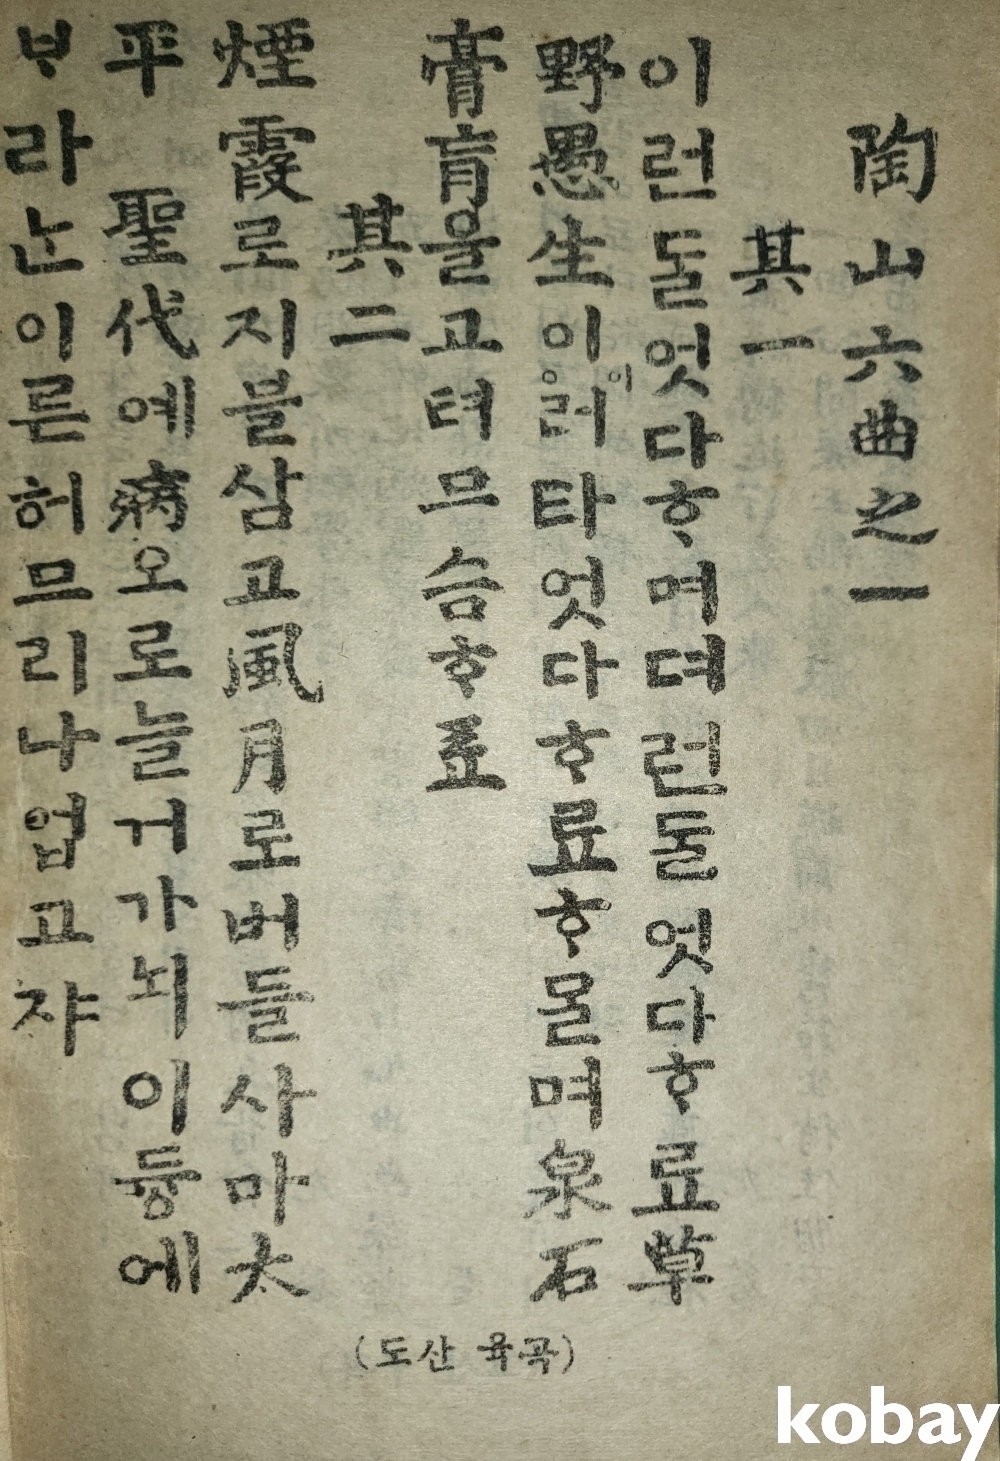 陶山六曲之一
其一
이런ᄃᆞᆯ엇다ᄒᆞ며뎌런ᄃᆞᆯ엇다ᄒᆞ료草
野愚生이이러타엇다ᄒᆞ료ᄒᆞᄆᆞᆯ며泉石
膏肓을고텨므슴ᄒᆞ료
其二
煙霞로지블삼고風月로버들사마太
平聖代예病오로늘거가뇌이듕에
ᄇᆞ라난이른허므리나업고쟈
(도산 육곡)
kobay